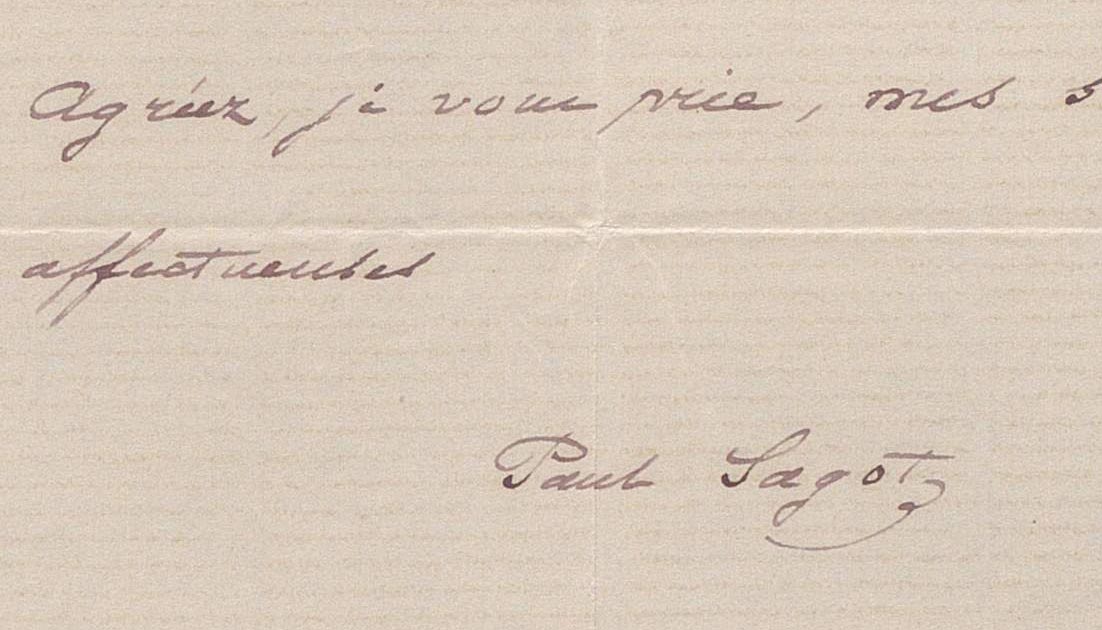 Agréez, je vous prie, mes s
affectueuses
Paul Sagot